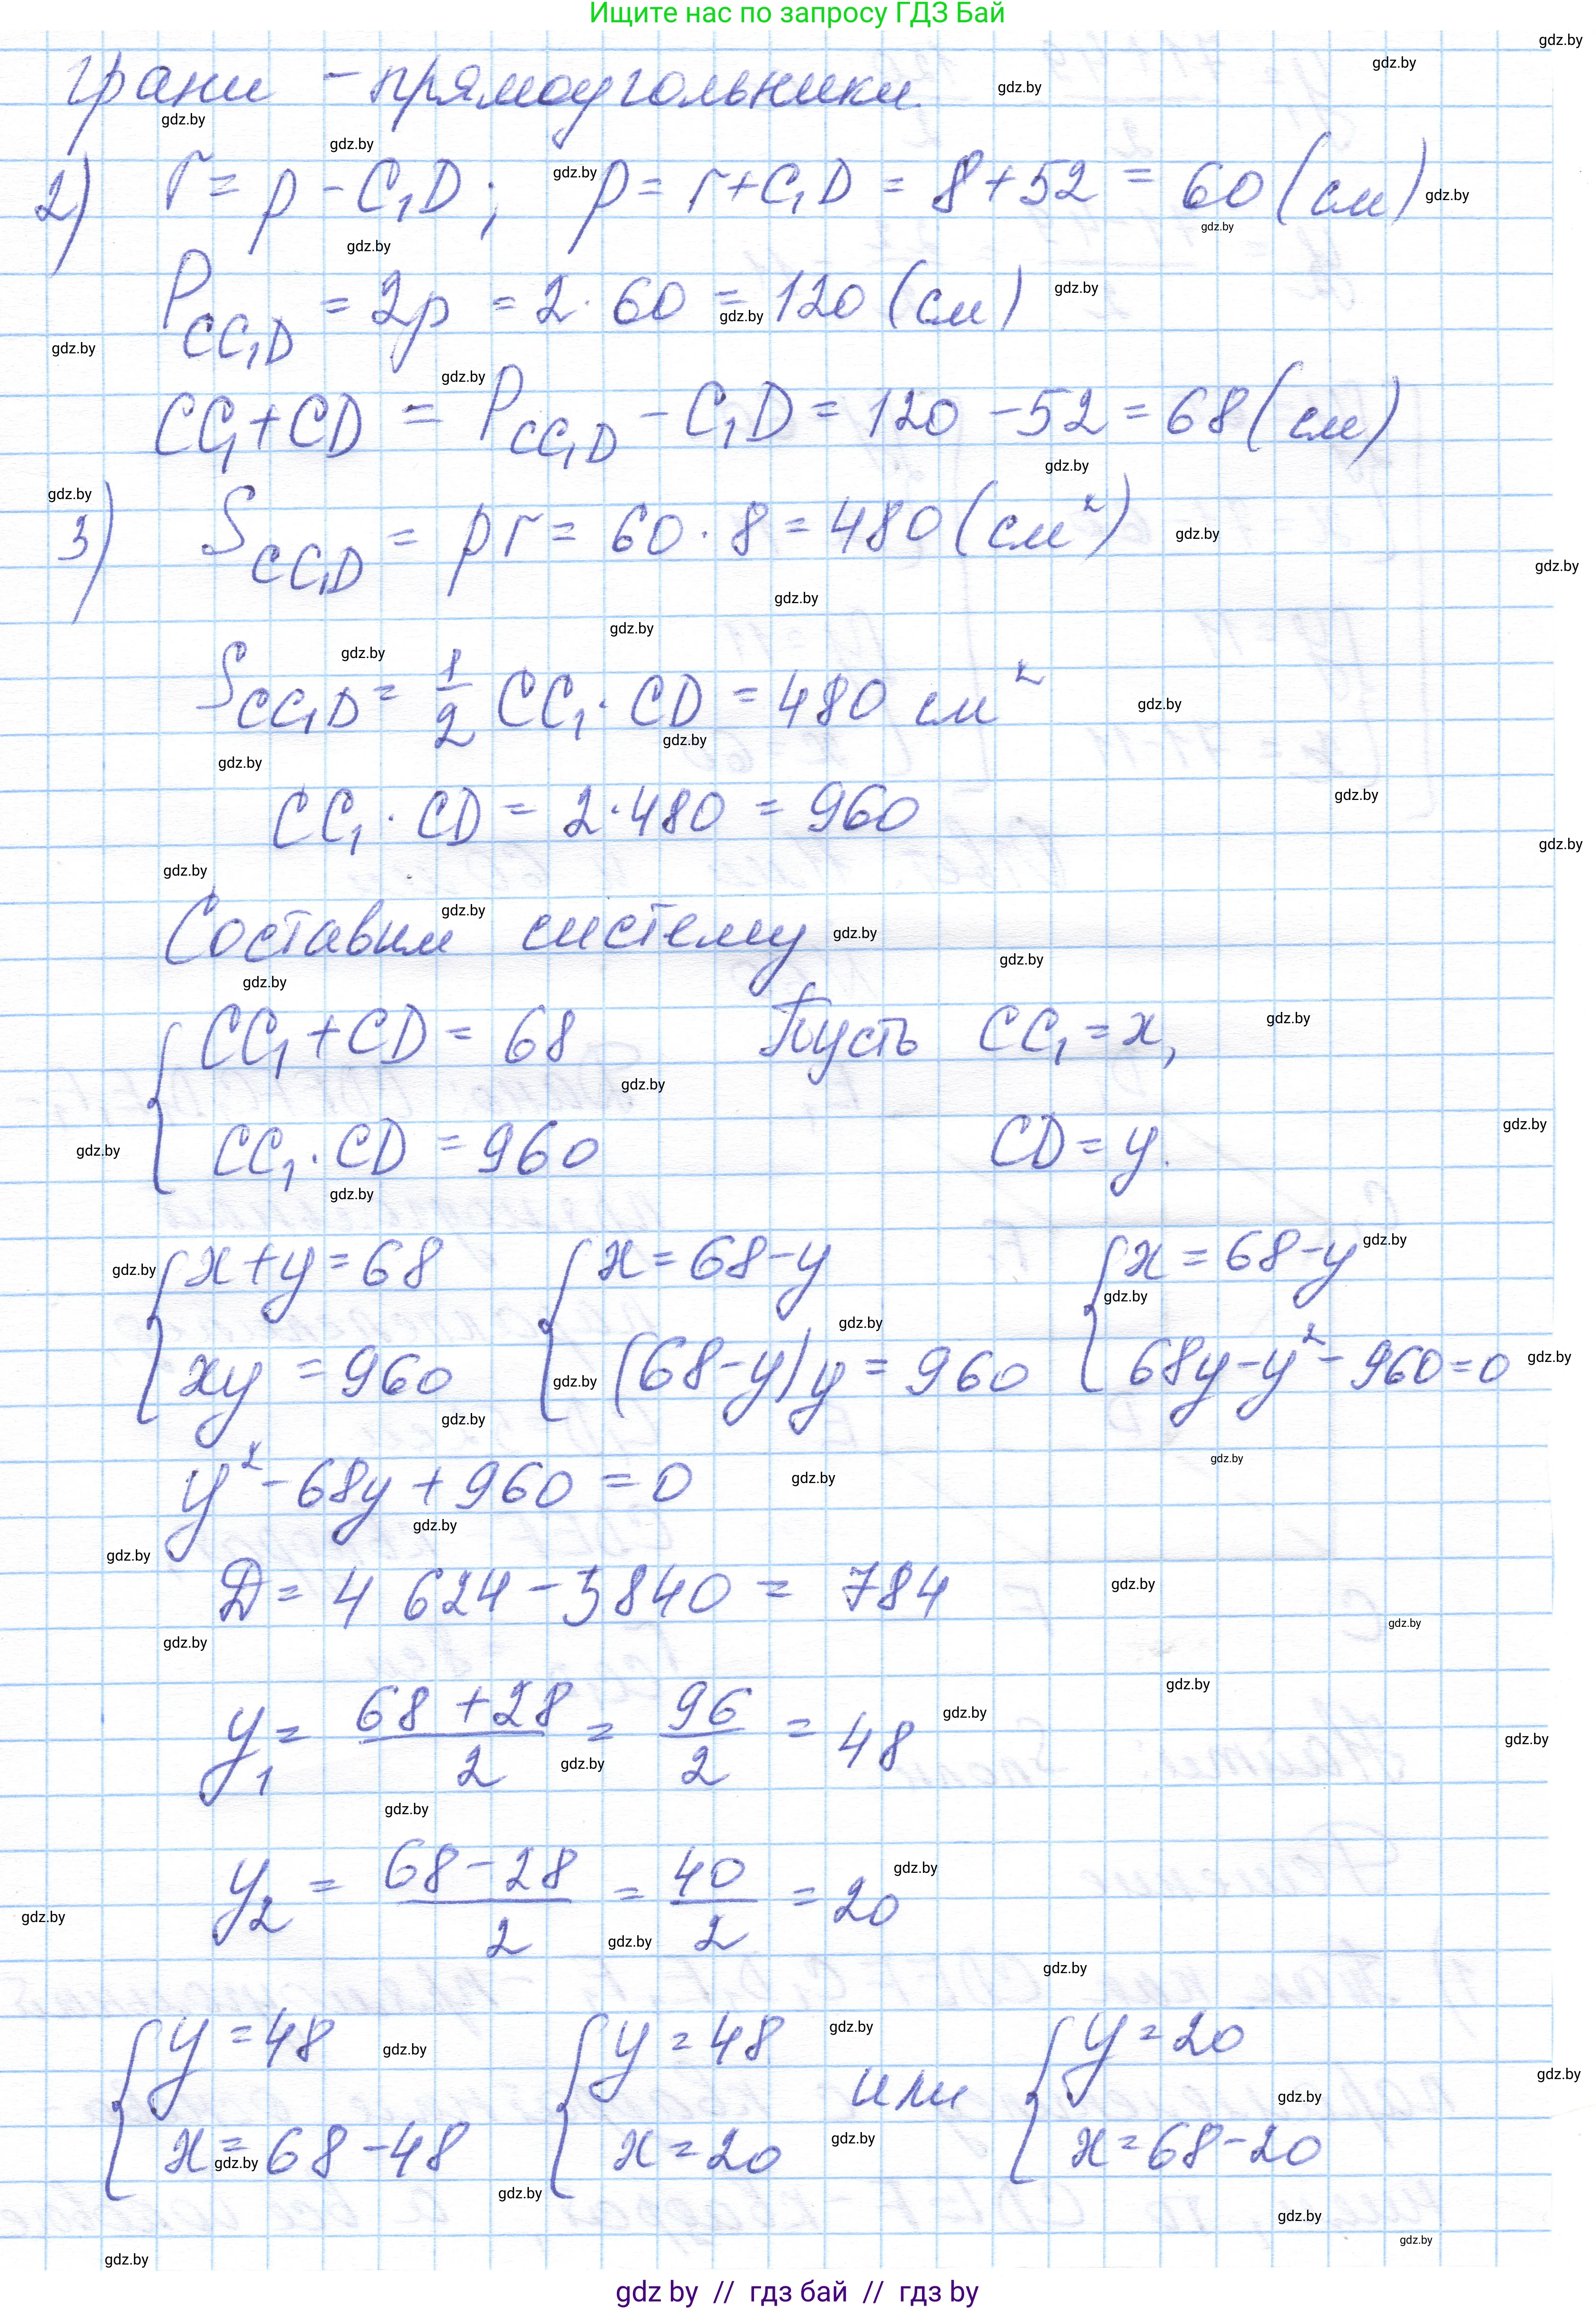 Ищите нас по запросу ГДЗ Бай
грани - прямоугольники.
2) r = p - C₁D; p = r + C₁D = 8 + 52 = 60 (см)
P_CC₁D = 2p = 2 · 60 = 120 (см)
CC₁ + CD = P_CC₁D - C₁D = 120 - 52 = 68 (см)
3) S_CC₁D = pr = 60 · 8 = 480 (см²)
S_CC₁D = 1/2 CC₁ · CD = 480 см²
CC₁ · CD = 2 · 480 = 960
Составим систему
{ CC₁ + CD = 68 Пусть CC₁ = x,
CC₁ · CD = 960 CD = y.
{ x + y = 68 { x = 68 - y { x = 68 - y
xy = 960 (68 - y)y = 960 68y - y² - 960 = 0
y² - 68y + 960 = 0
D = 4 624 - 3840 = 784
y₁ = (68 + 28)/2 = 96/2 = 48
y₂ = (68 - 28)/2 = 40/2 = 20
{ y = 48 { y = 48 или { y = 20
x = 68 - 48 x = 20 x = 68 - 20
gdz by // гдз бай // гдз by